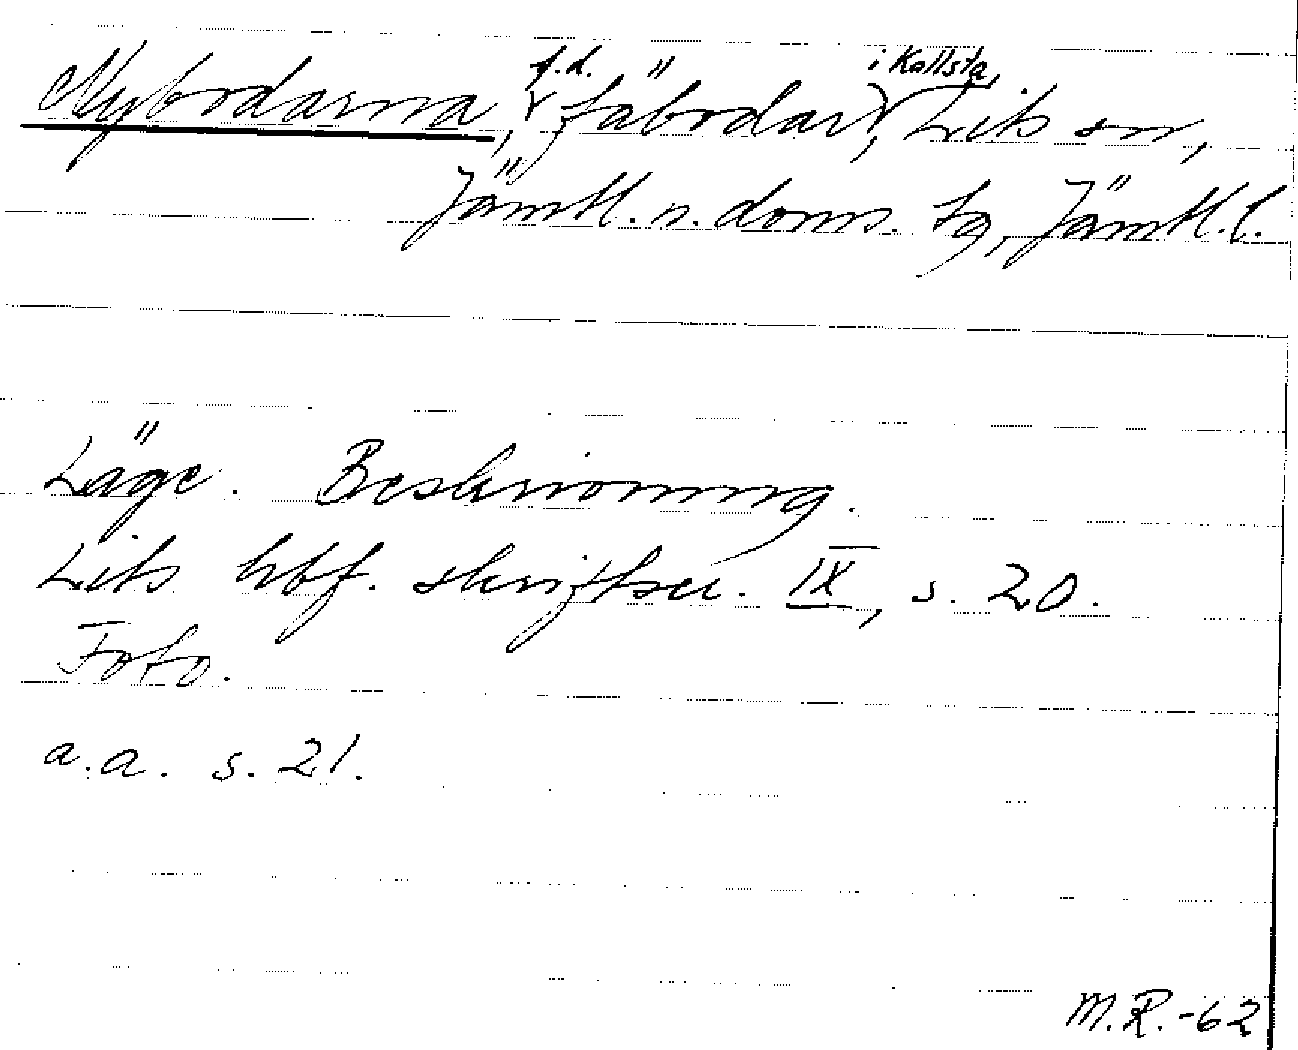 Nybodarna, f.d. fäbodar i Kallsta, Lits sn,
Jämtl. n. doms. tg, Jämtl. l.
Läge. Beskrivning.
Lits hbf. skriftser. IX, s. 20.
Foto.
a.a. s. 21.
M.R.-62